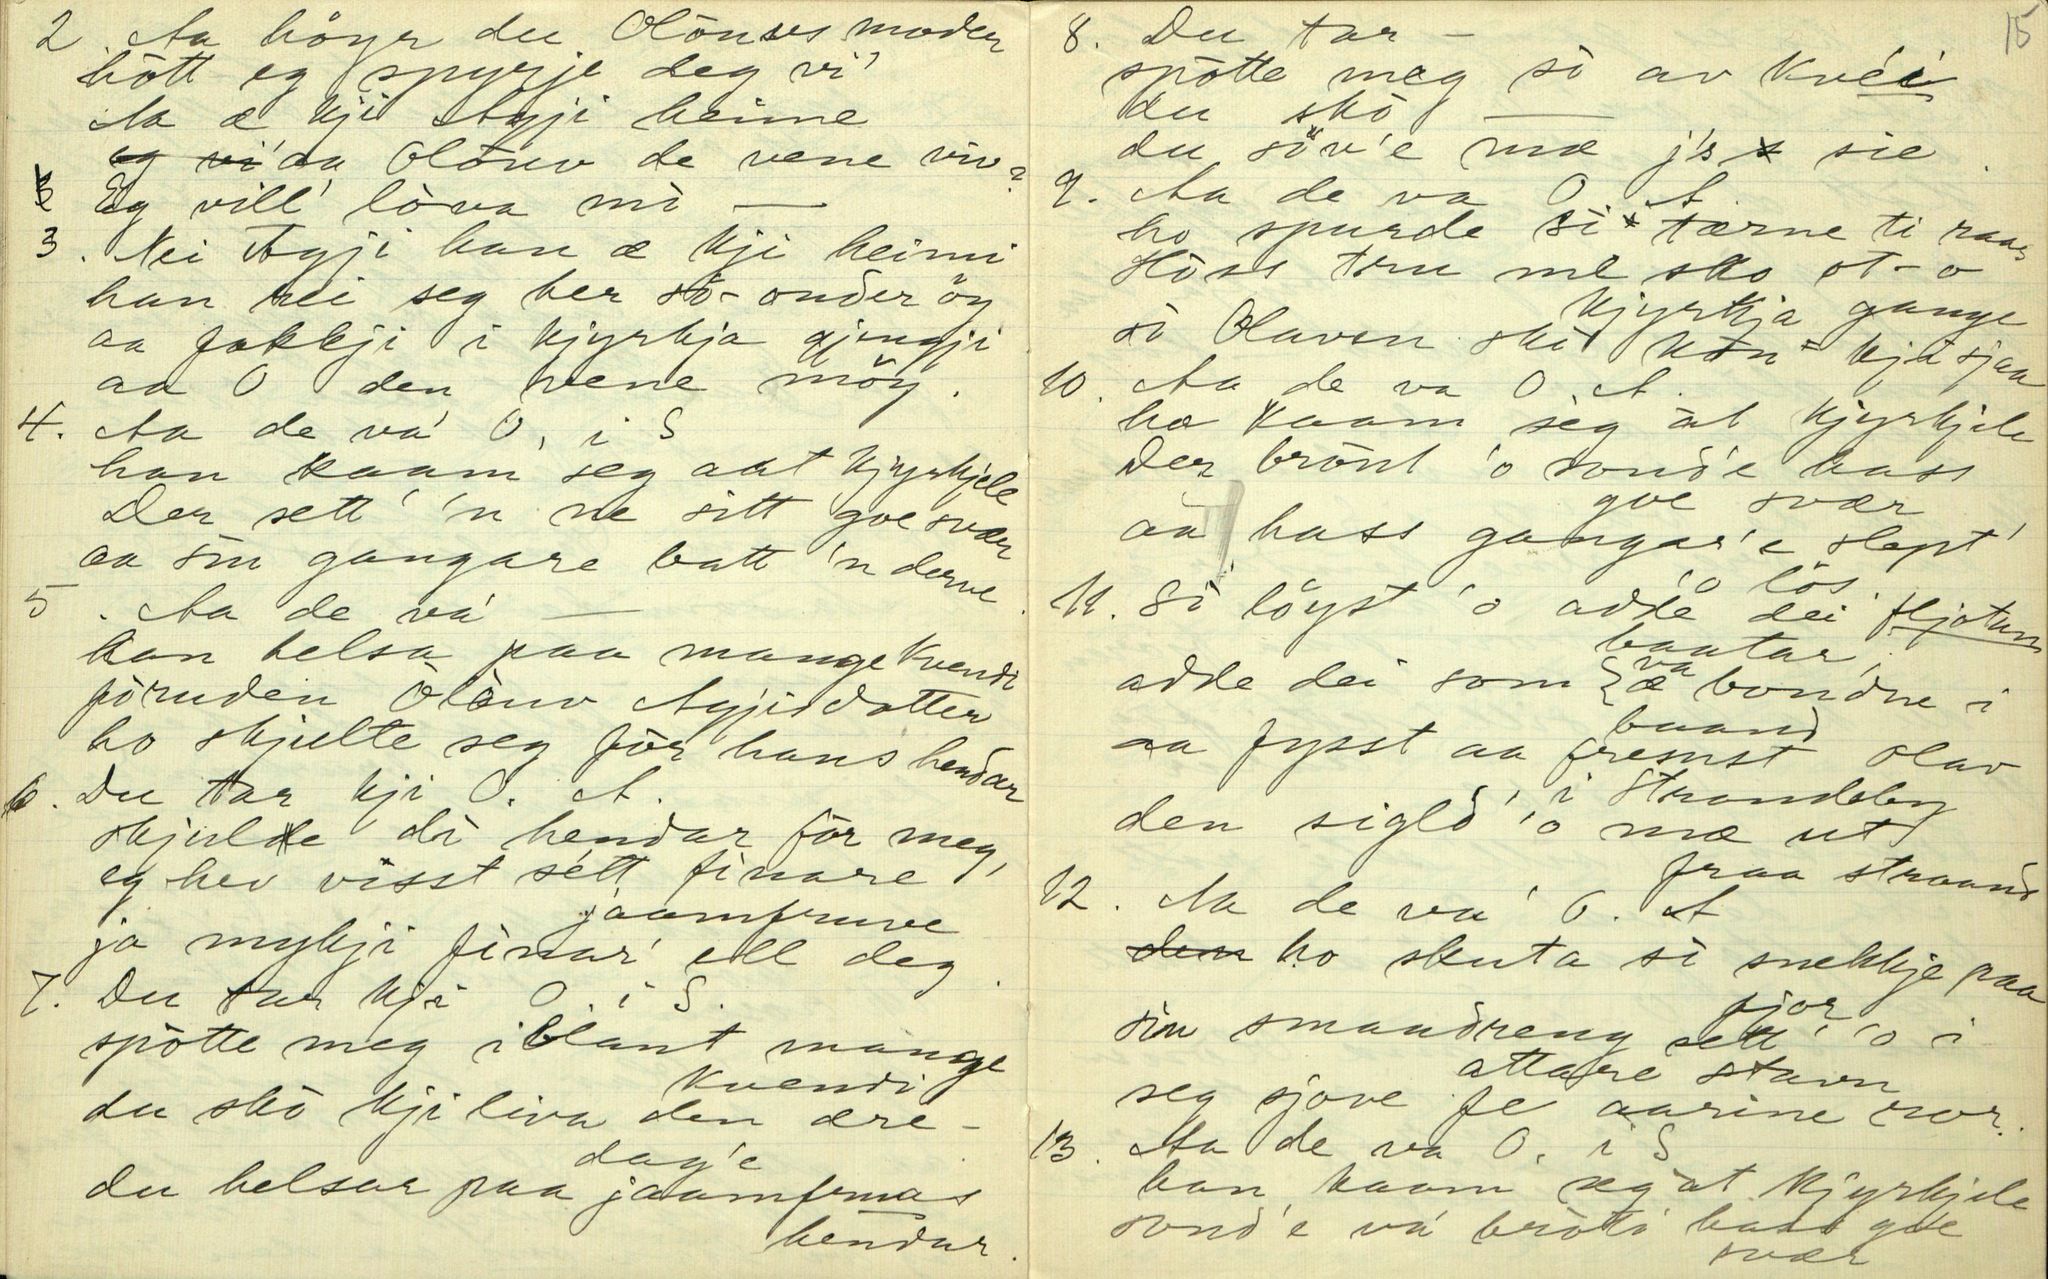 2. Aa høyr du Olønses moder
hòtt eg spyrje deg vi'
Aa æ kji Ayji heime
eg vi' aa Olòuv de vene viv?
Eg vill' lòva mi —
3. Nei Ayji han æ kji heimi
han rei seg her sò-onder öy
aa fokkji i kjyrkja gjengji
aa O den vene möy.
4. Aa de va' O. i S
han kaam seg aat kjyrkjele
Der sett' 'n ne sitt goe svær
aa sin gangare batt 'n derve.
5. Aa de va' —
han helsa paa mange kvendi
föruden Olòuv Ayjisdotter
ho skjulte seg för hans hendar
6. Du tar kji O. A.
skjulde di hendar för meg,
eg hev visst sétt finare
jaamfruve
ja mykji finar' ell deg.
7. Du tar kji O. i S.
spòtte meg iblant mange
kvendi
du skò kji liva den ære-
dag'e
du helsar paa jaamfruas
hendar.
15
8. Du tar —
spòtte meg sò av kvéi
du skò —
du söv'e mæ j's sie.
9. Aa de va O. A.
ho spurde si tærne ti raas
Hòss tru me sko ot-o
kjyrkja gange
sò Olaven skò kòn kji sjaa
10. Aa de va O A.
ho kaam seg at kjyrkjele
Der bröut 'o sond'e hass
goe svær
aa hass gangar'e slept'
o lös.
11. Sò löyst 'o adde dei fljotan
baatar,
adde dei som æ va bondne i
baand
aa fysst aa fremst Olav
i Strandeby
den siglò 'o mæ ut
fraa straand
12. Aa de va' O. A
den ho skuta si snekkje paa
fjor
sin smaadreng sett' 'o i
attare stavn
seg sjove fe aarine ror.
13. Aa de va O. i S
han kaam seg at kjyrkjele
sond'e va' bròti hass goe
svær